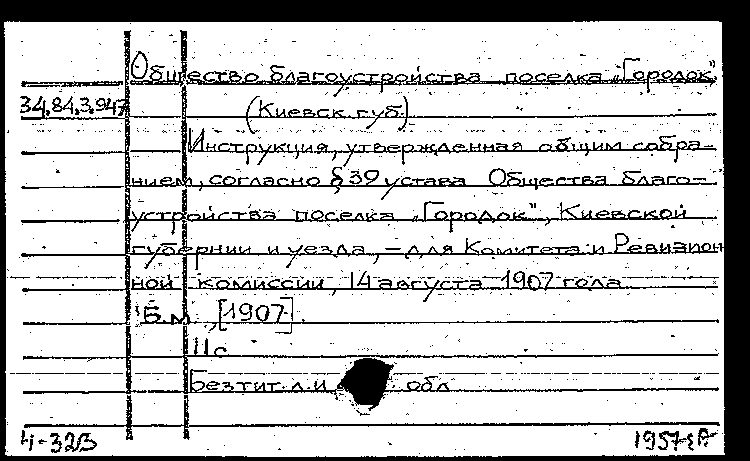 Общество благоустройства поселка „Городок"
34.84.3.947
(Киевск. губ.)
Инструкция, утвержденная общим собра-
нием, согласно § 39 устава Общества благо-
устройства поселка „Городок", Киевской
губернии и уезда, – для Комитета и Ревизион
ной комиссии, 14 августа 1907 года
Б.м., [1907].
11с
Без тит. л. и обл
4-32В